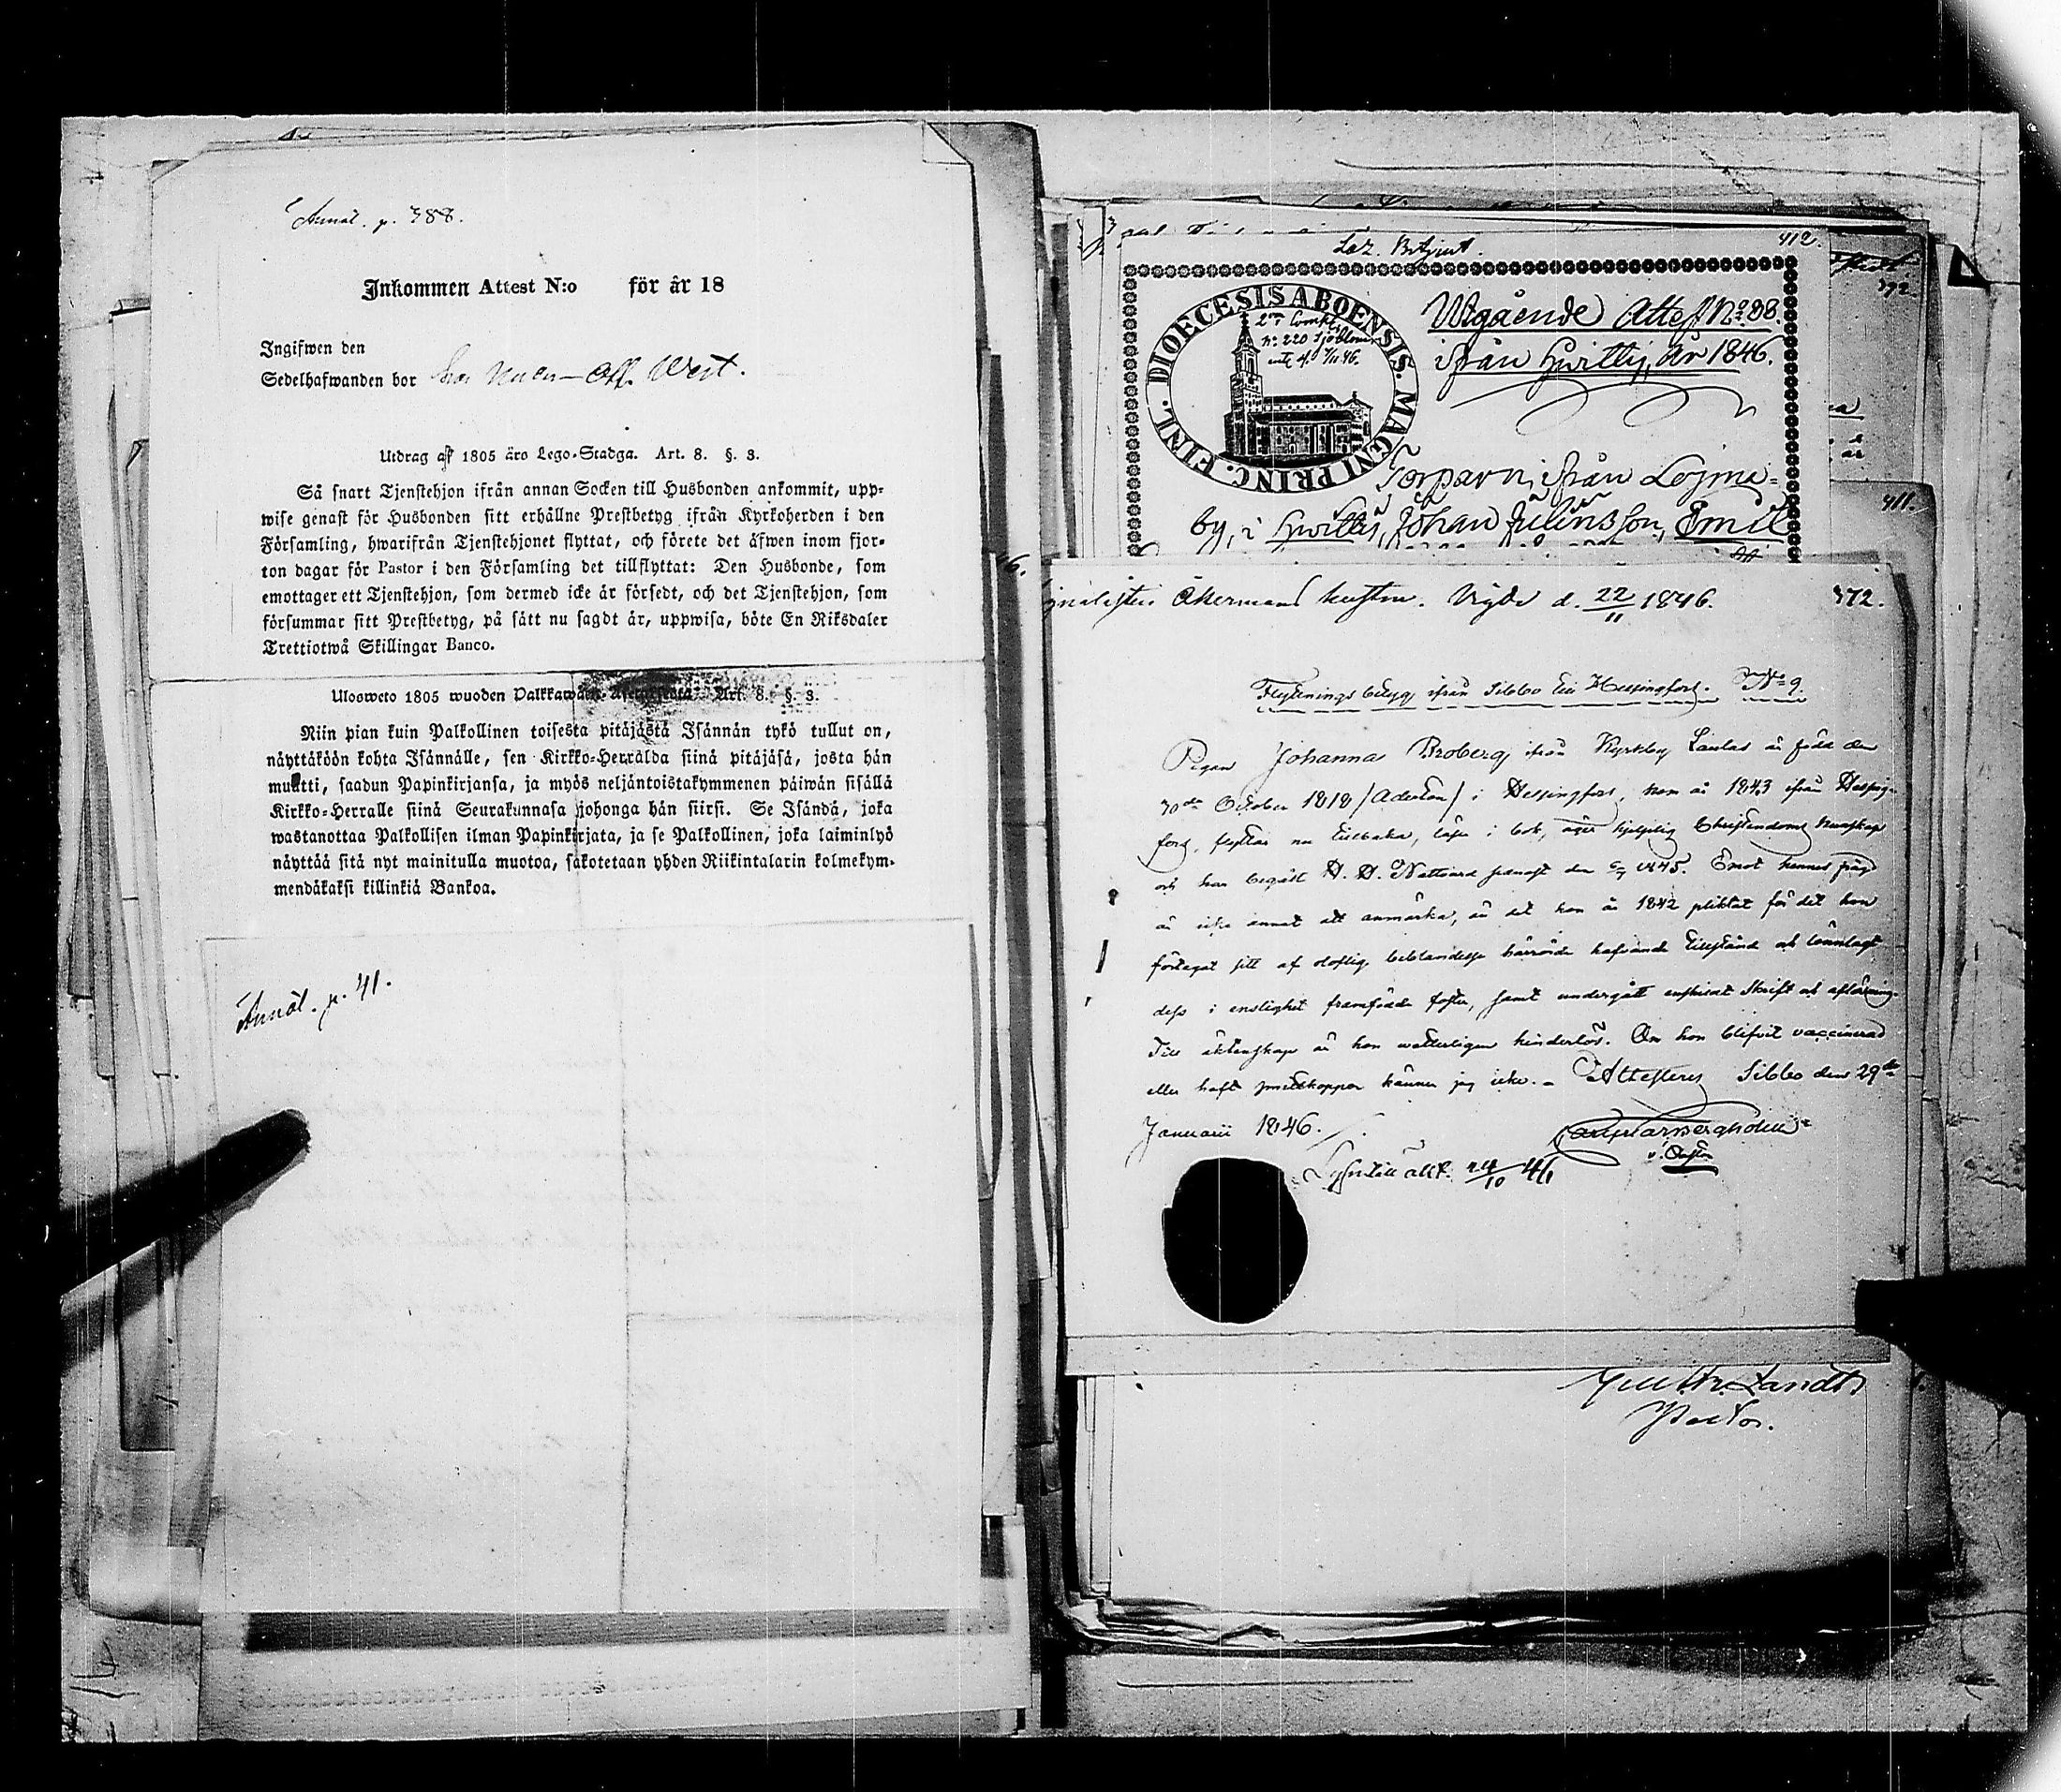 Anmäl. p. 388.
Inkommen Attest N:o för år 18
Ingifwen den
Sedelhafwanden bor hos Off. West.
Utdrag af 1805 års Lego-Stadga. Art. 8. §. 3.
Så snart Tjenstehjon ifrån annan Socken till Husbonden ankommit, upp-
wise genast för Husbonden sitt erhållne Prestbetyg ifrån Kyrkoherden i den
Församling, hwarifrån Tjenstehjonet flyttat, och förete det äfwen inom fjor-
ton dagar för Pastor i den Församling det tillflyttat: Den Husbonde, som
emottager ett Tjenstehjon, som dermed icke är försedt, och det Tjenstehjon, som
försummar sitt Prestbetyg, på sätt nu sagdt är, uppwisa, böte En Riksdaler
Trettiotwå Skillingar Banco.
Ulosweto 1805 wuoden Art. 8. §. 3.
Niin pian kuin Palkollinen toisesta pitäjästä Isännän tykö tullut on,
näyttäköön kohta Isännälle, sen Kirkko-Herralda siinä pitäjäsä, josta hän
muutti, saadun Papinkirjansa, ja myös neljäntoistakymmenen päiwän sisällä
Kirkko-Herralle siinä Seurakunnasa johonga hän siirsi. Se Isändä, joka
wastanottaa Palkollisen ilman Papinkirjata, ja se Palkollinen, joka laiminlyö
näyttää sitä nyt mainitulla muotoa, sakotetaan yhden Riikintalarin kolmekym-
mendäkaksi killinkiä Bankoa.
Anmäl. p. 41.
412.
DIOECESIS ABOENSIS. MAGNI PRINC. FINL.
2:r Compl.
N:o 220 Sjöblom
Utgående Attest N:o 88.
ifrån Hvittis, År 1846.
Torparn, ifrån Lojma=
by, i Hvittis, Johan Julinsson, Emil
411.
Åkermans hustru. Vigde d. 22/11 1846.
372.
Flyttningsbetyg ifrån Sibbo till Helsingfors. N:o 9.
Pigan Johanna Broberg ifrån Kyrkby är född den
30de October 1818 (Aderton) i Helsingfors, kom år 1843 ifrån Helsing-
fors, flyttar nu tillbaka, läser i bok, äger hjelplig Christendoms kunskap
och har begått H. H. Nattvard senast den 1845. Emot hennes frägd
är icke annat att anmärka, än att hon år 1842 pliktat för det hon
förtegat sitt af oloflig beblandelse härrörde hafvande tillstånd och lönnlagt
dess i enslighet framfödde foster, samt undergått enskildt Skrift och aflösning.
Till äktenskap är hon wetterligen hinderlös. Om hon blifvit vaccinerad
eller haft smittkoppor känner jag icke. - Attesteras Sibbo den 29de
Januarii 1846.
Lysn. till äkt. 24/10 46
Pastor.